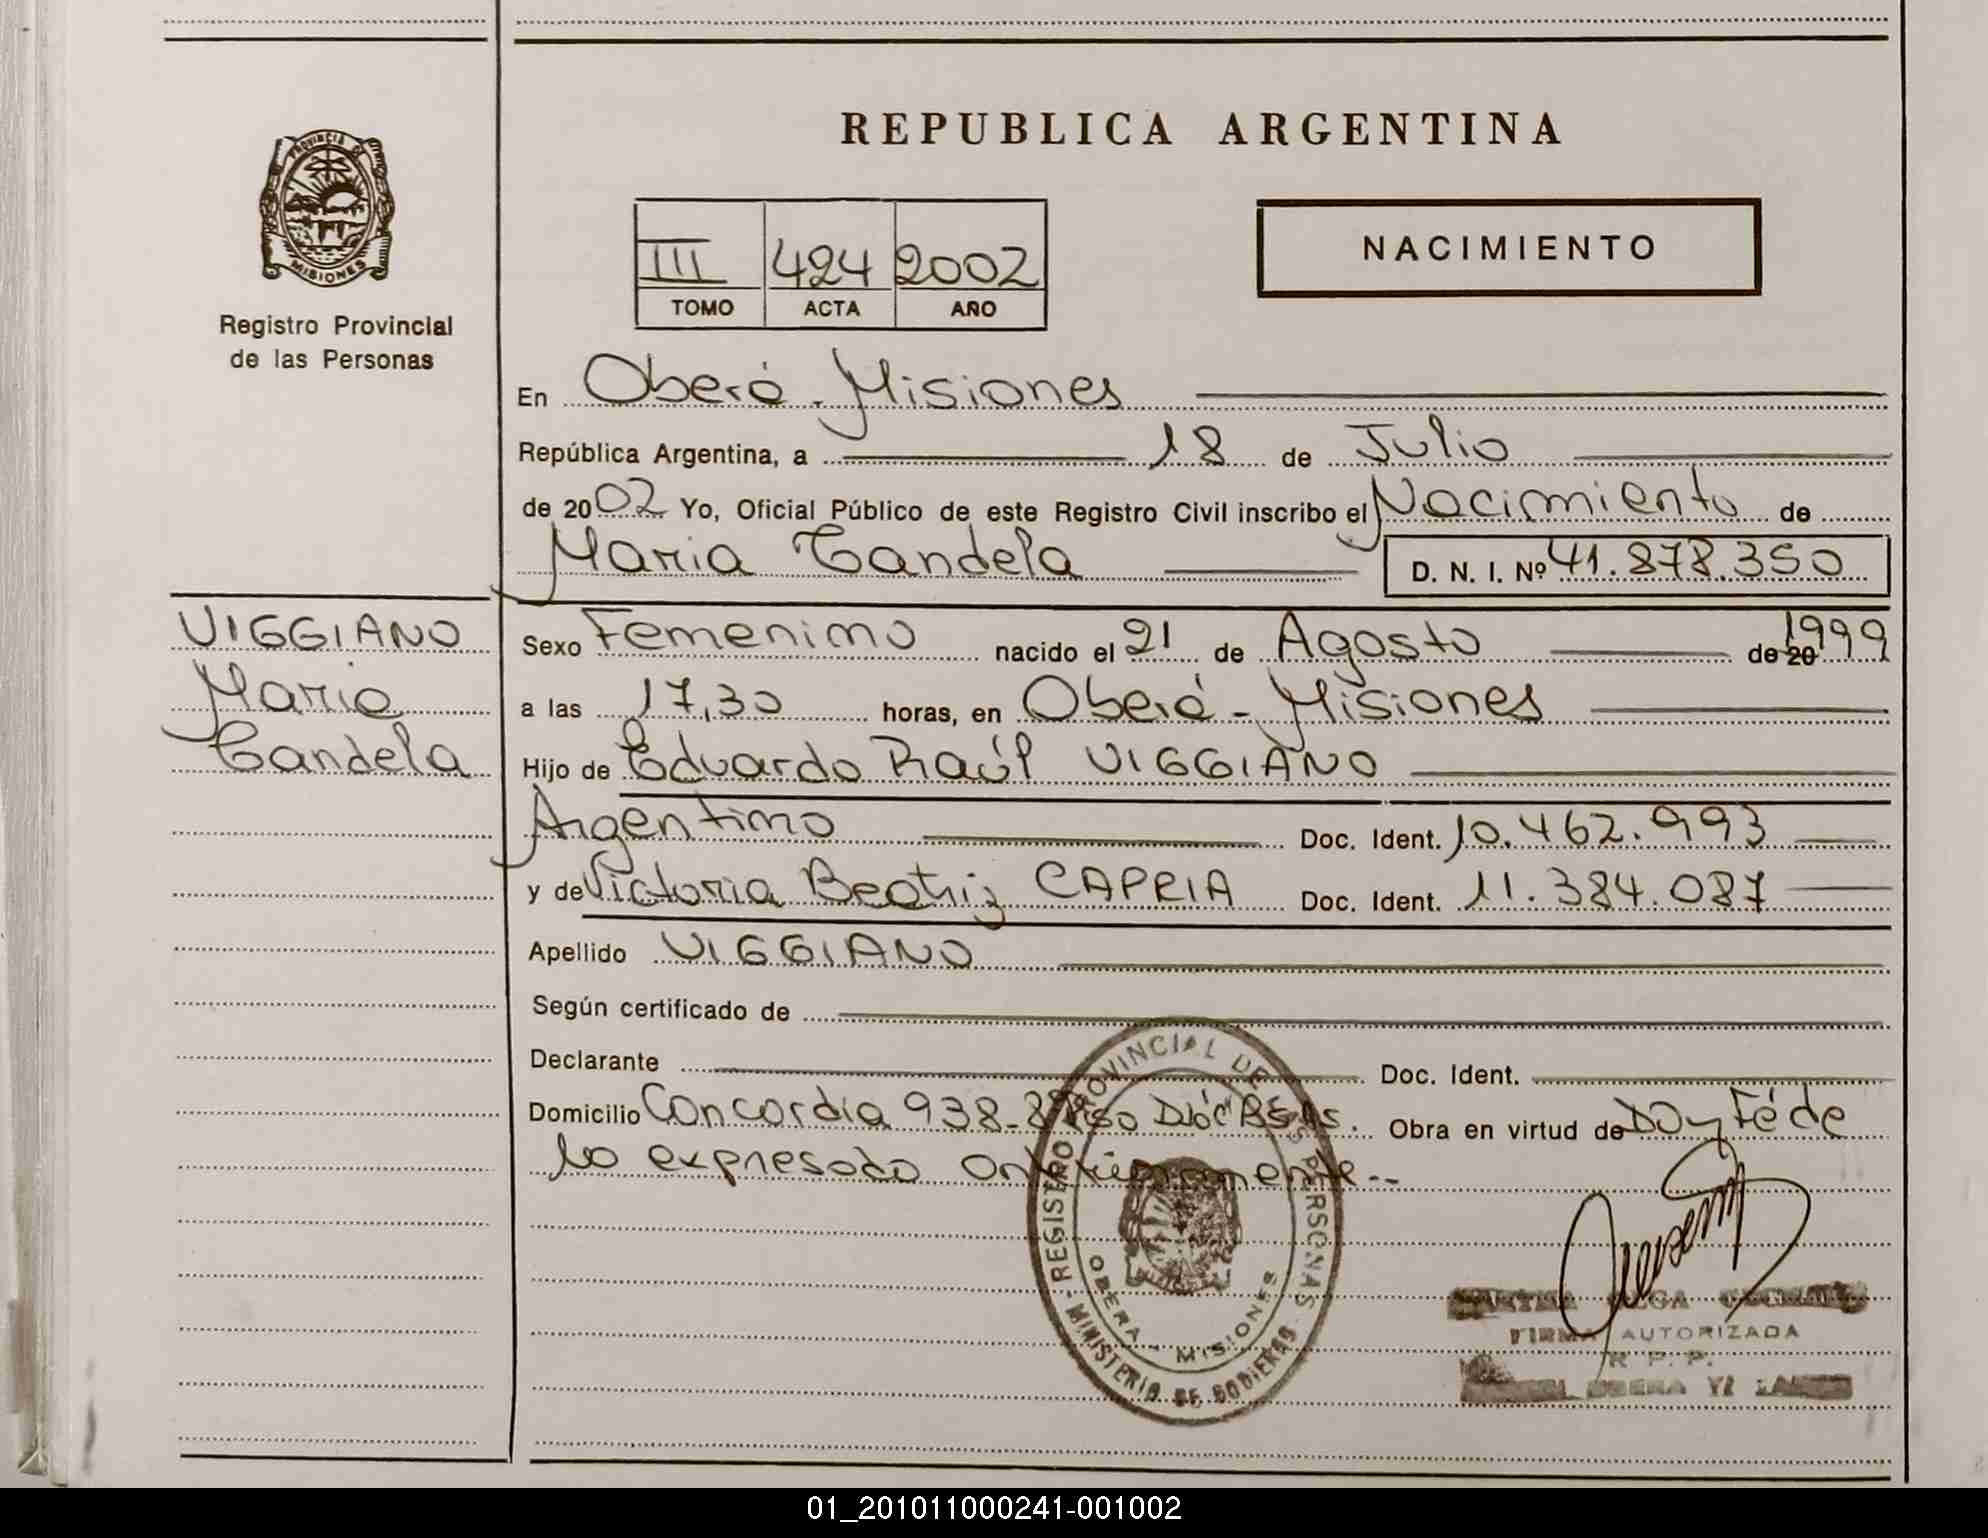 REPUBLICA ARGENTINA
PROVINCIA DE
MISIONES
Registro Provincial
de las Personas
III 424 2002
TOMO ACTA AÑO
NACIMIENTO
En Oberá - Misiones
República Argentina, a 18 de Julio
de 2002 Yo, Oficial Público de este Registro Civil inscribo el Nacimiento de
Maria Candela D. N. I. Nº 41.878.350
VIGGIANO
Maria
Candela
Sexo Femenino nacido el 21 de Agosto de 20 1999
a las 17,30 horas, en Oberá - Misiones
Hijo de Eduardo Raúl VIGGIANO
Argentino Doc. Ident. 10.462.993
y de Victoria Beatriz CAPRIA Doc. Ident. 11.384.087
Apellido VIGGIANO
Según certificado de
Declarante Doc. Ident.
Domicilio Concordia 938-8º Piso Dtó "C" Bs As. Obra en virtud de Doy Fé de
lo expresado anteriormente.-
REGISTRO PROVINCIAL DE LAS PERSONAS
OBERA - MISIONES
MINISTERIO DE GOBIERNO
OLGA
FIRMA AUTORIZADA
R. P. P.
OBERA
01_201011000241-001002